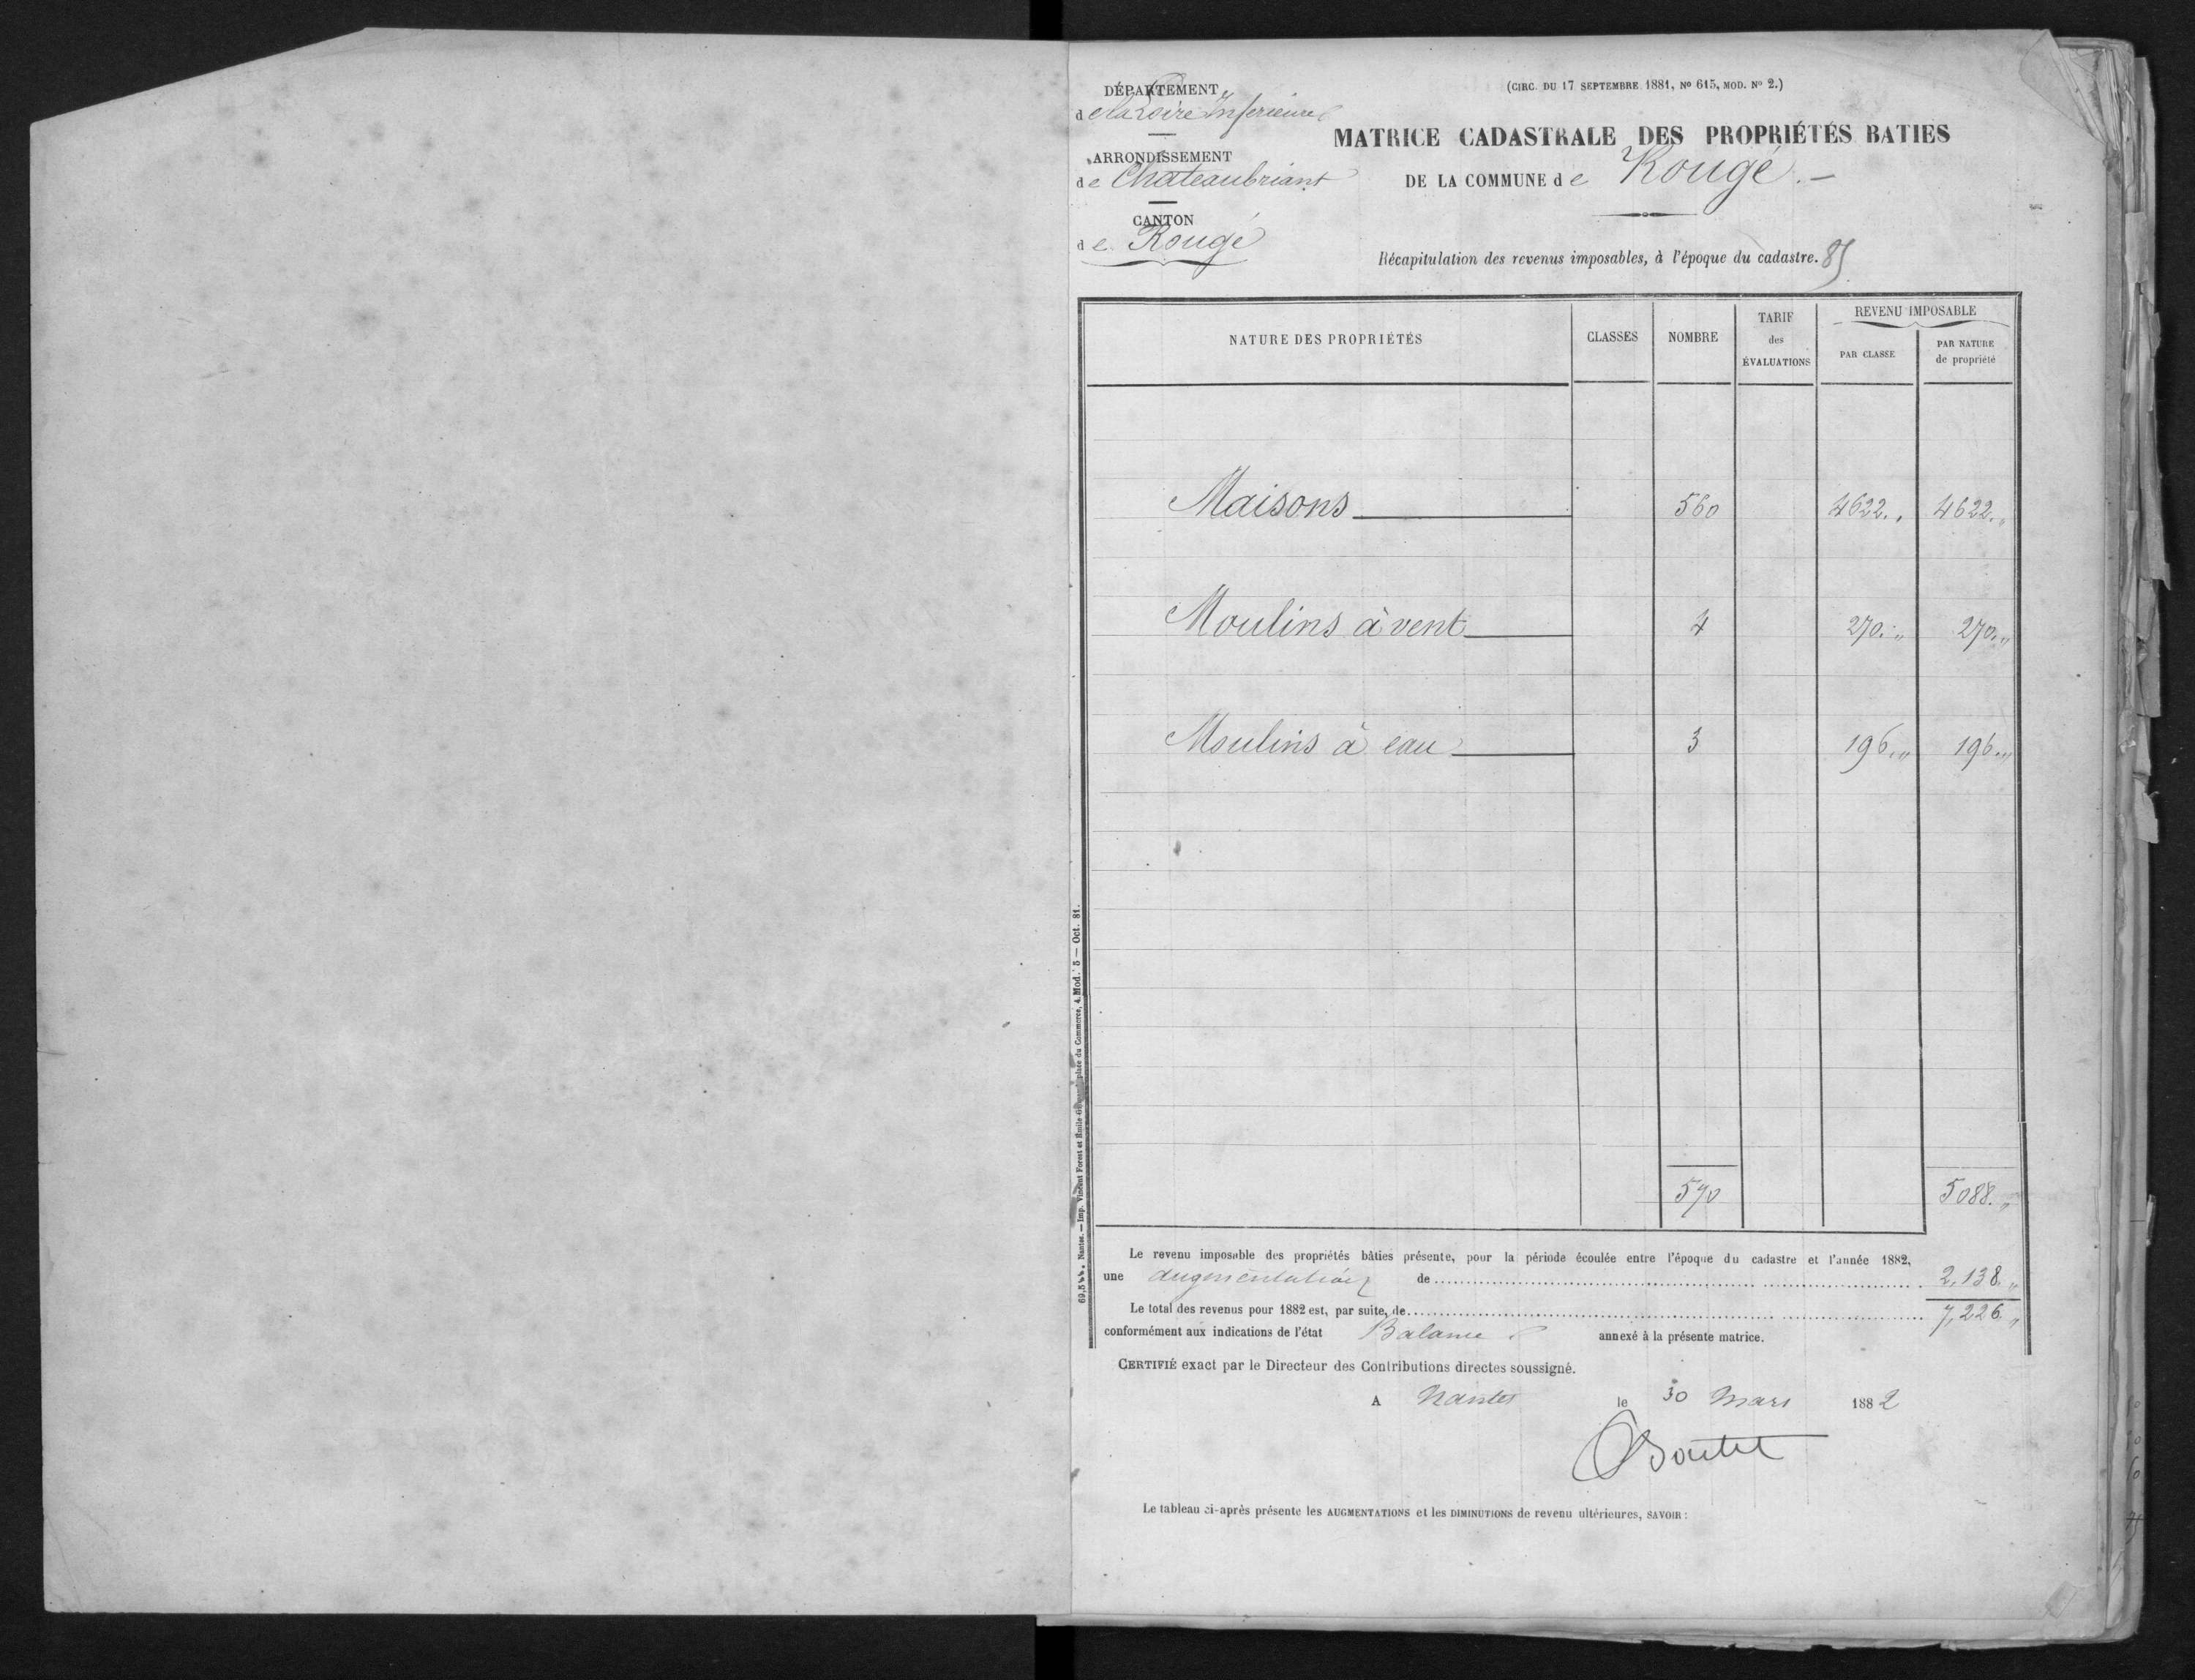 (CIRC. DU 17 SEPTEMBRE 1881, No 615, MOD. No 2.)
DÉPARTEMENT
de la Loire Inférieure
ARRONDISSEMENT
de Chateaubriant
CANTON
de Rougé
MATRICE CADASTRALE DES PROPRIÉTÉS BATIES
DE LA COMMUNE de Rougé. —
Récapitulation des revenus imposables, à l'époque du cadastre.
NATURE DES PROPRIÉTÉS CLASSES NOMBRE TARIF des ÉVALUATIONS REVENU IMPOSABLE
PAR CLASSE PAR NATURE de propriété
Maisons 560 4622. " 4622. "
Moulins à vent 4 270. " 270. "
Moulins à eau 3 196. " 196. "
570 5088. "
Le revenu imposable des propriétés bâties présente, pour la période écoulée entre l'époque du cadastre et l'année 1882,
une augmentation de 2,138. "
Le total des revenus pour 1882 est, par suite, de 7,226 "
conformément aux indications de l'état Balance annexé à la présente matrice.
CERTIFIÉ exact par le Directeur des Contributions directes soussigné.
A Nantes le 30 Mars 1882
Le tableau ci-après présente les AUGMENTATIONS et les DIMINUTIONS de revenu ultérieures, SAVOIR :
Nantes. — Imp. Vincent Forest et Émile place du Commerce, 4. Mod. 5 — Oct. 81.